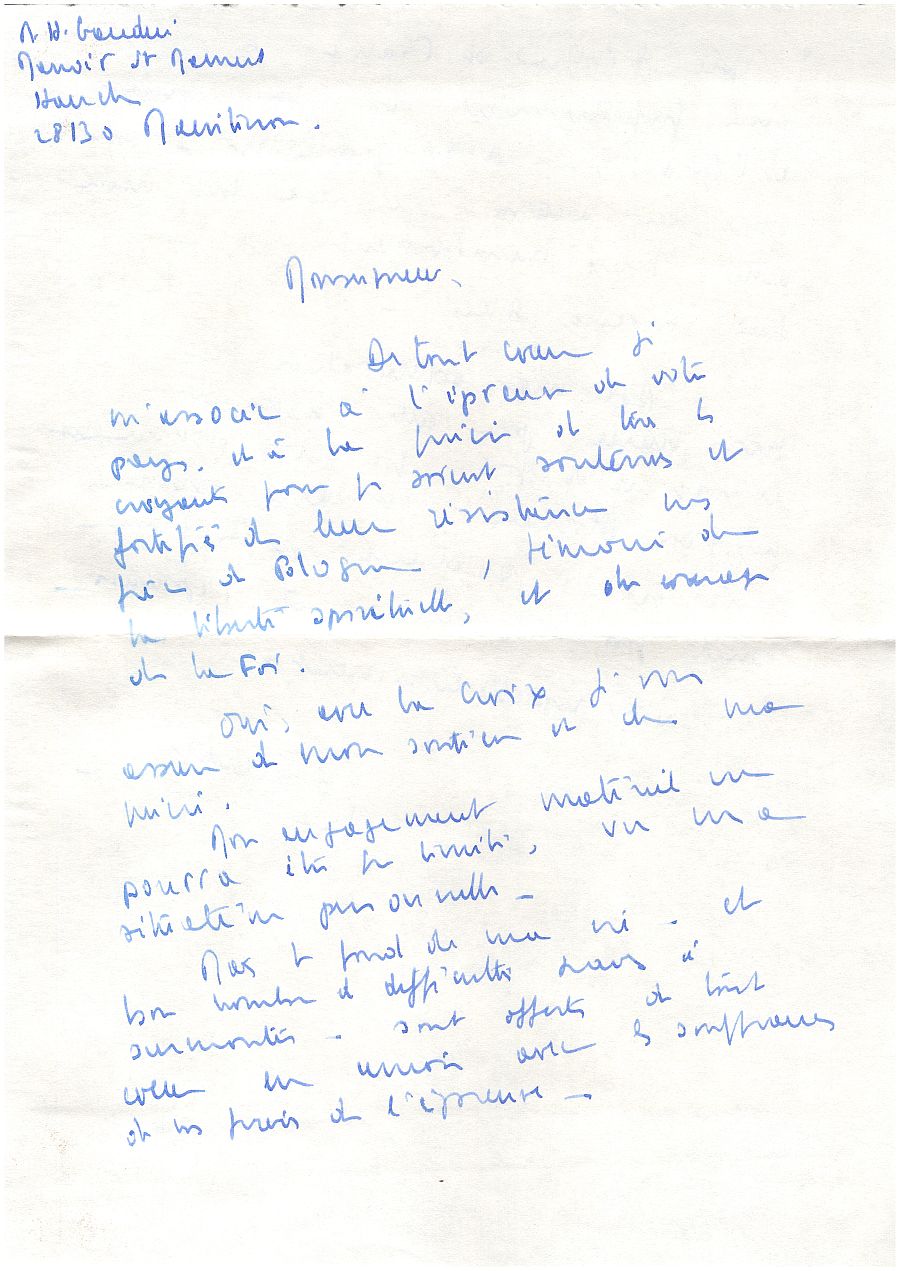 28130
Monseigneur,
De tout coeur je
m'associe à l'épreuve de votre
pays. et à la prière de tous les
croyants pour que soient soutenus et
fortifiés dans leur résistance nos
frères de Pologne, témoins de
la liberté spirituelle, et du courage
de la Foi.
Oui, avec la Croix je vous
assure de mon soutien et de ma
prière.
Mon engagement matériel ne
pourra être que limité, vu ma
situation personnelle -
Mais le fond de ma vie - et
bon nombre de difficultés à
surmonter - sont offerts de tout
coeur en union avec les souffrances
de nos frères de l'épreuve -